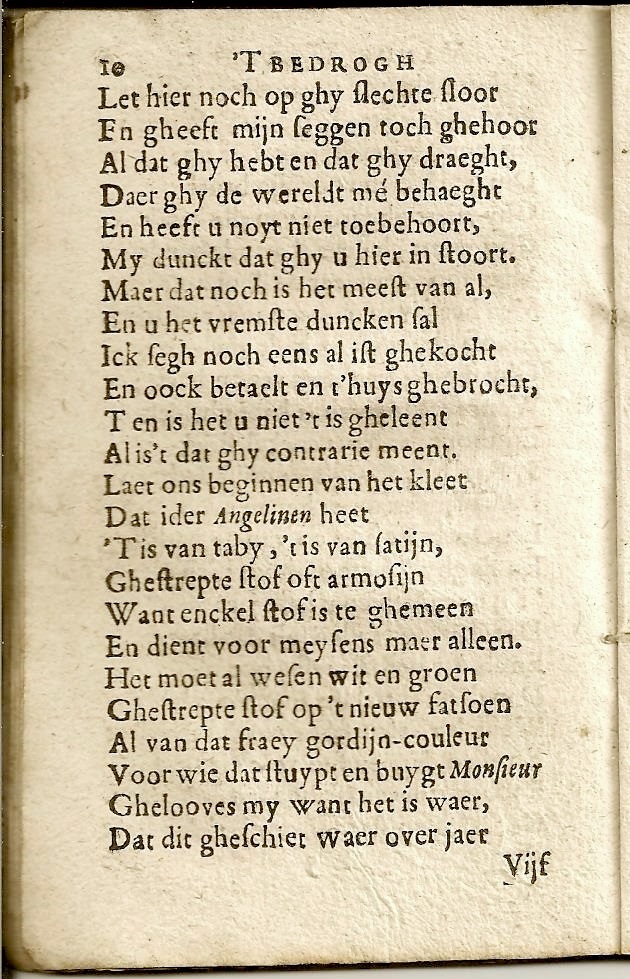 10 'T BEDROGH
Let hier noch op ghy ſlechte ſloor
En gheeft mijn ſeggen toch ghehoor
Al dat ghy hebt en dat ghy draeght,
Daer ghy de wereldt mé behaeght
En heeft u noyt niet toebehoort,
My dunckt dat ghy u hier in ſtoort.
Maer dat noch is het meeſt van al,
En u het vremſte duncken ſal
Ick ſegh noch eens al iſt ghekocht
En oock betaelt en t'huys ghebrocht,
T en is het u niet 't is gheleent
Al is't dat ghy contrarie meent.
Laet ons beginnen van het kleet
Dat ider Angelinen heet
'T is van taby, 't is van ſatijn,
Gheſtrepte ſtof oft armoſijn
Want enckel ſtof is te ghemeen
En dient voor meyſens maer alleen.
Het moet al weſen wit en groen
Gheſtrepte ſtof op 't nieuw fatſoen
Al van dat fraey gordijn-couleur
Voor wie dat ſtuypt en buygt Monſieur
Ghelooves my want het is waer,
Dat dit gheſchiet waer over jaer
Vijf